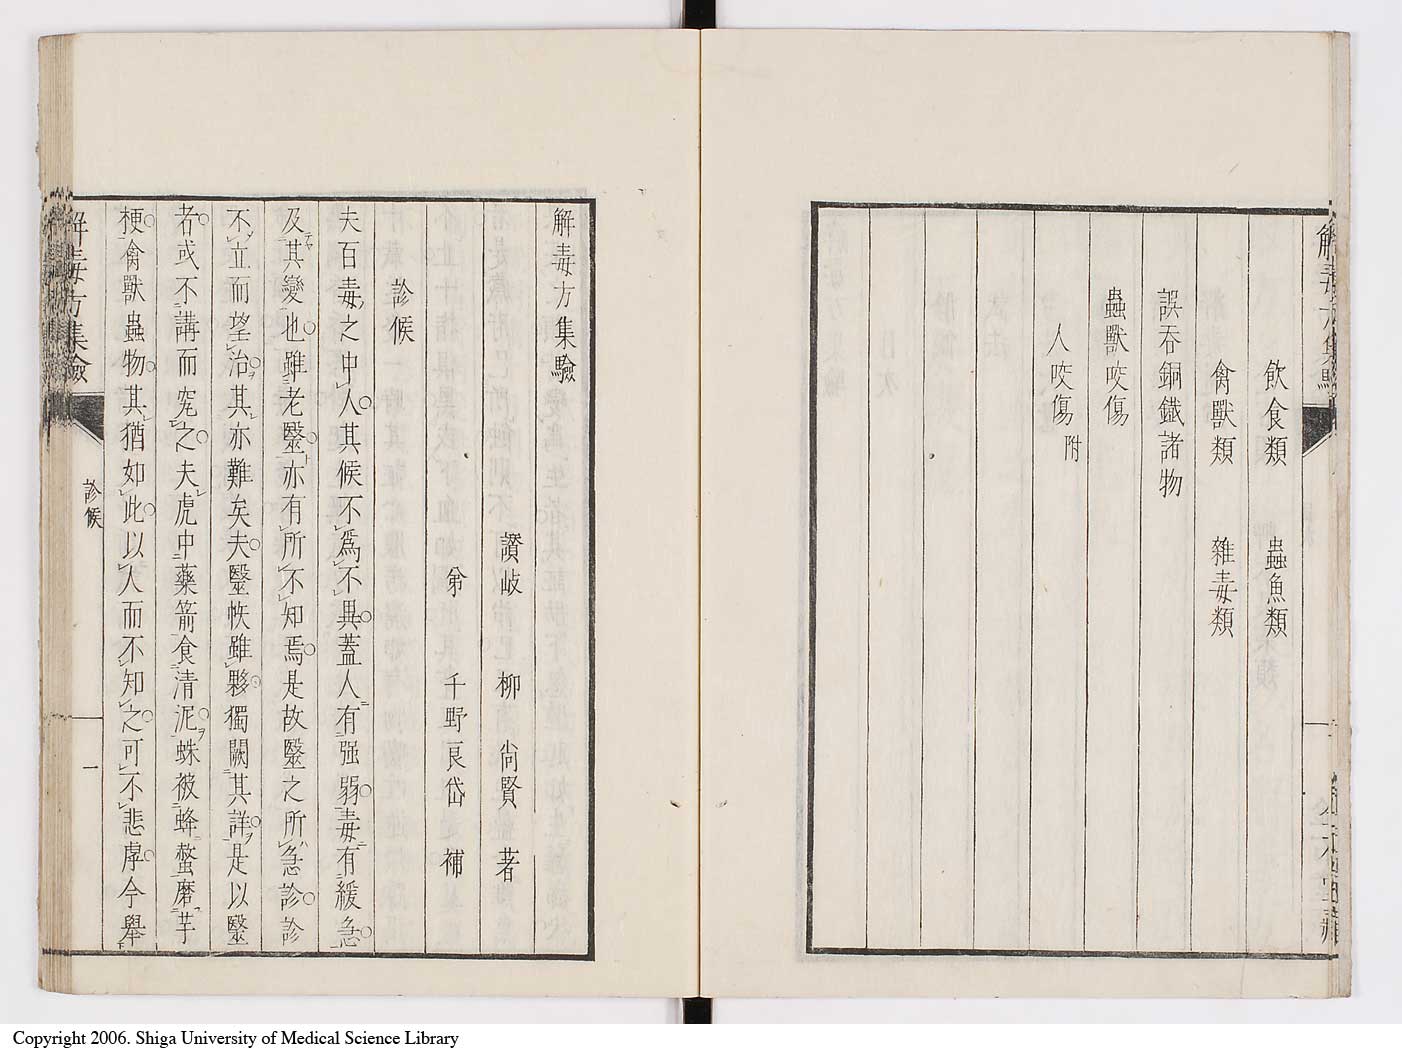 解毒方集驗
飲食類　蟲魚類
禽獸類　雜毒類
誤吞銅鐵諸物
蟲獸咬傷
人咬傷附
解毒方集驗
讃岐　柳　尙賢　著
千野良岱　補
診候
夫百毒之中人其候不爲不異蓋人有强弱毒有緩急
及其變也雖老毉亦有所不知焉是故毉之所急診診
不立而望治其亦難矣夫毉帙雖夥獨闕其詳是以毉
者或不講而究之夫虎中藥箭食清泥蛛被蜂螫磨芋
梗禽獸蟲物其猶如此以人而不知之可不悲虖今舉
解毒方集驗
診候
一
Copyright 2006. Shiga University of Medical Science Library